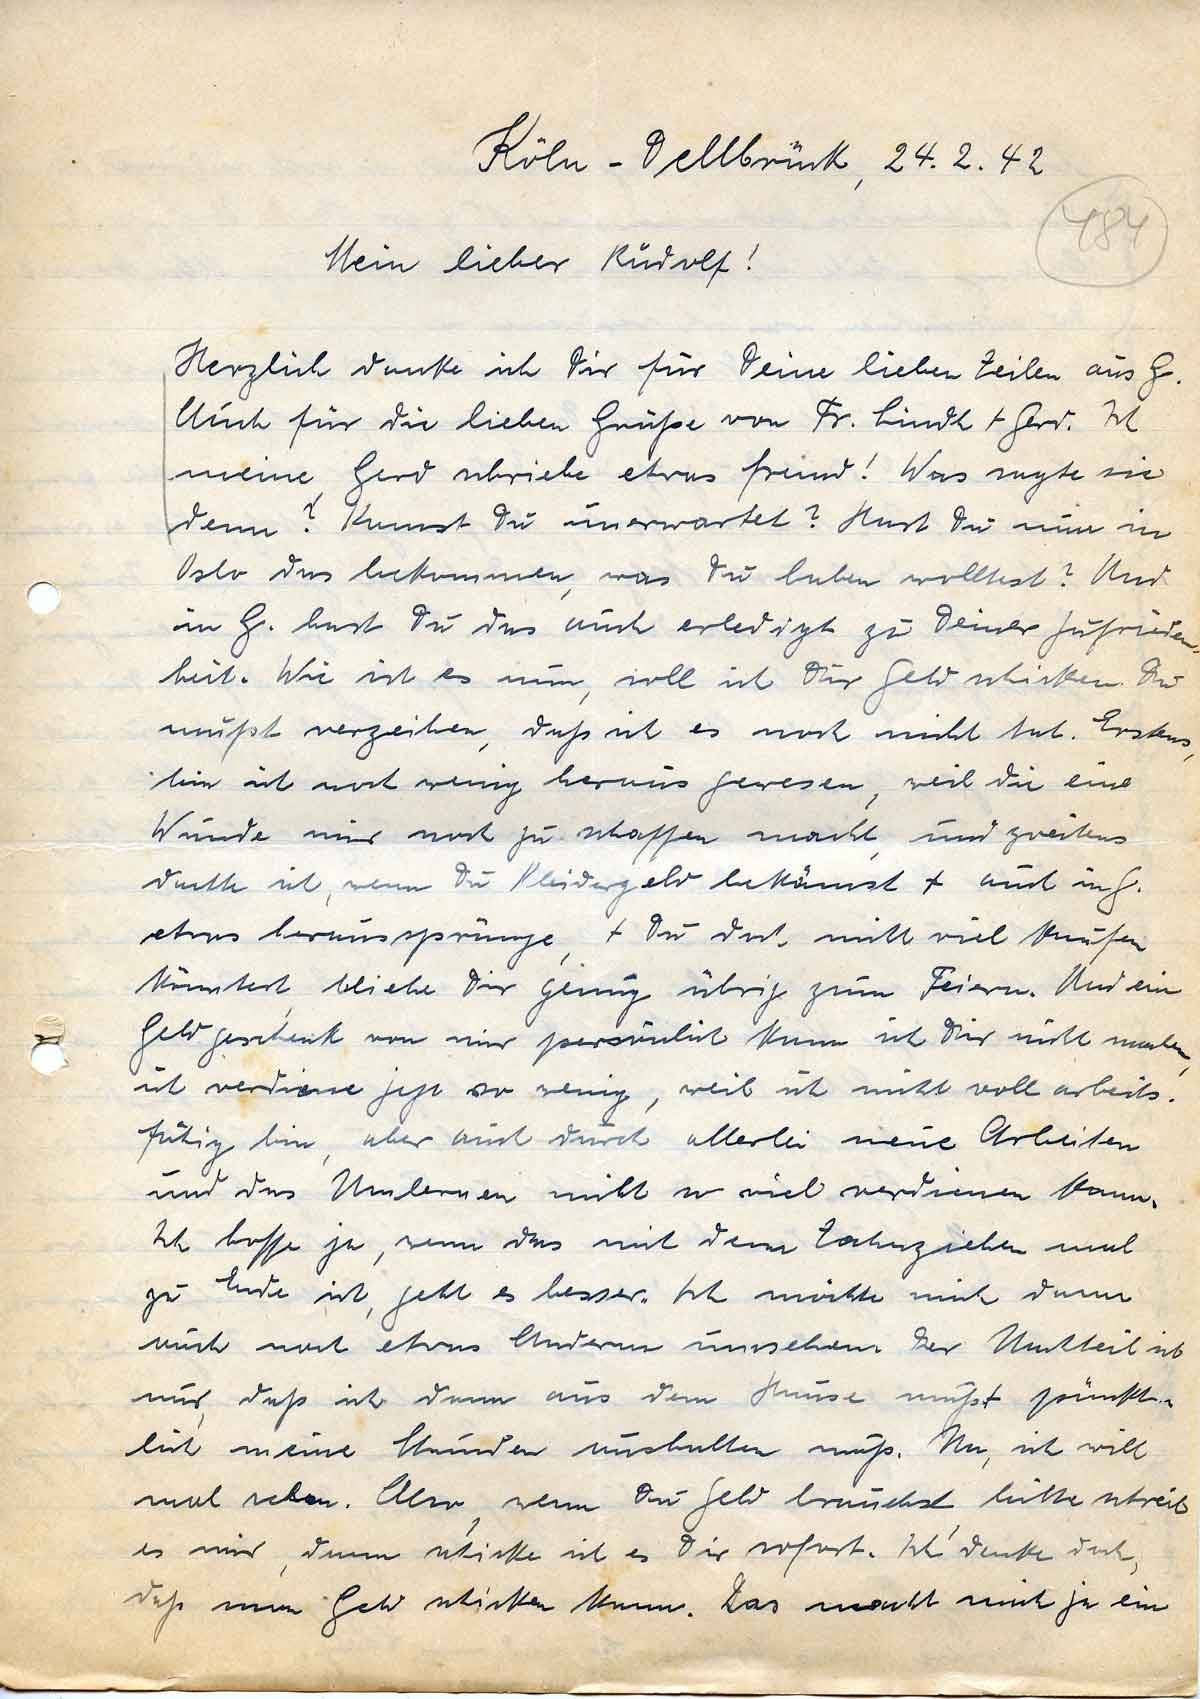 Köln-Dellbrück, 24.2.42
484
Mein lieber Rudolf!
Herzlich danke ich Dir für Deine lieben Zeilen aus G.
Auch für die lieben Grüße von Fr. Lindh + Gerd. Ich
meine, Gerd schriebe etwas fremd! Was sagte sie
denn? Kamst Du unerwartet? Hast Du nun in
Oslo das bekommen, was Du haben wolltest? Und
in G. hast Du das auch erledigt zu Deiner Zufrieden-
heit. Wie ist es nun, soll ich Dir Geld schicken. Du
mußt verzeihen, daß ich es noch nicht tat. Erstens,
bin ich noch wenig heraus gewesen, weil die eine
Wunde mir noch zu schaffen macht, und zweitens
dachte ich, wenn Du Kleidergeld bekämst + auch in G.
etwas herausspränge, + Du doch nicht viel kaufen
könntest, bliebe Dir genug übrig zum Feiern. Und ein
Geldgeschenk von mir persönlich kann ich Dir nicht machen,
ich verdiene jetzt so wenig, weil ich nicht voll arbeits-
fähig bin, aber auch durch allerlei neue Arbeiten
und das Umlernen nicht so viel verdienen kann.
Ich hoffe ja, wenn das mit dem Zahnziehen mal
zu Ende ist, geht es besser. Ich möchte mich dann
auch nach etwas Anderem umsehen. Der Nachteil ist
nur, daß ich dann aus dem Hause muß + pünkt-
lich meine Stunden aushalten muß. Na, ich will
mal sehen. Also, wenn Du Geld brauchst, bitte schreib
es mir, dann schicke ich es Dir sofort. Ich denke doch,
daß man Geld schicken kann. Das macht mich ja ein